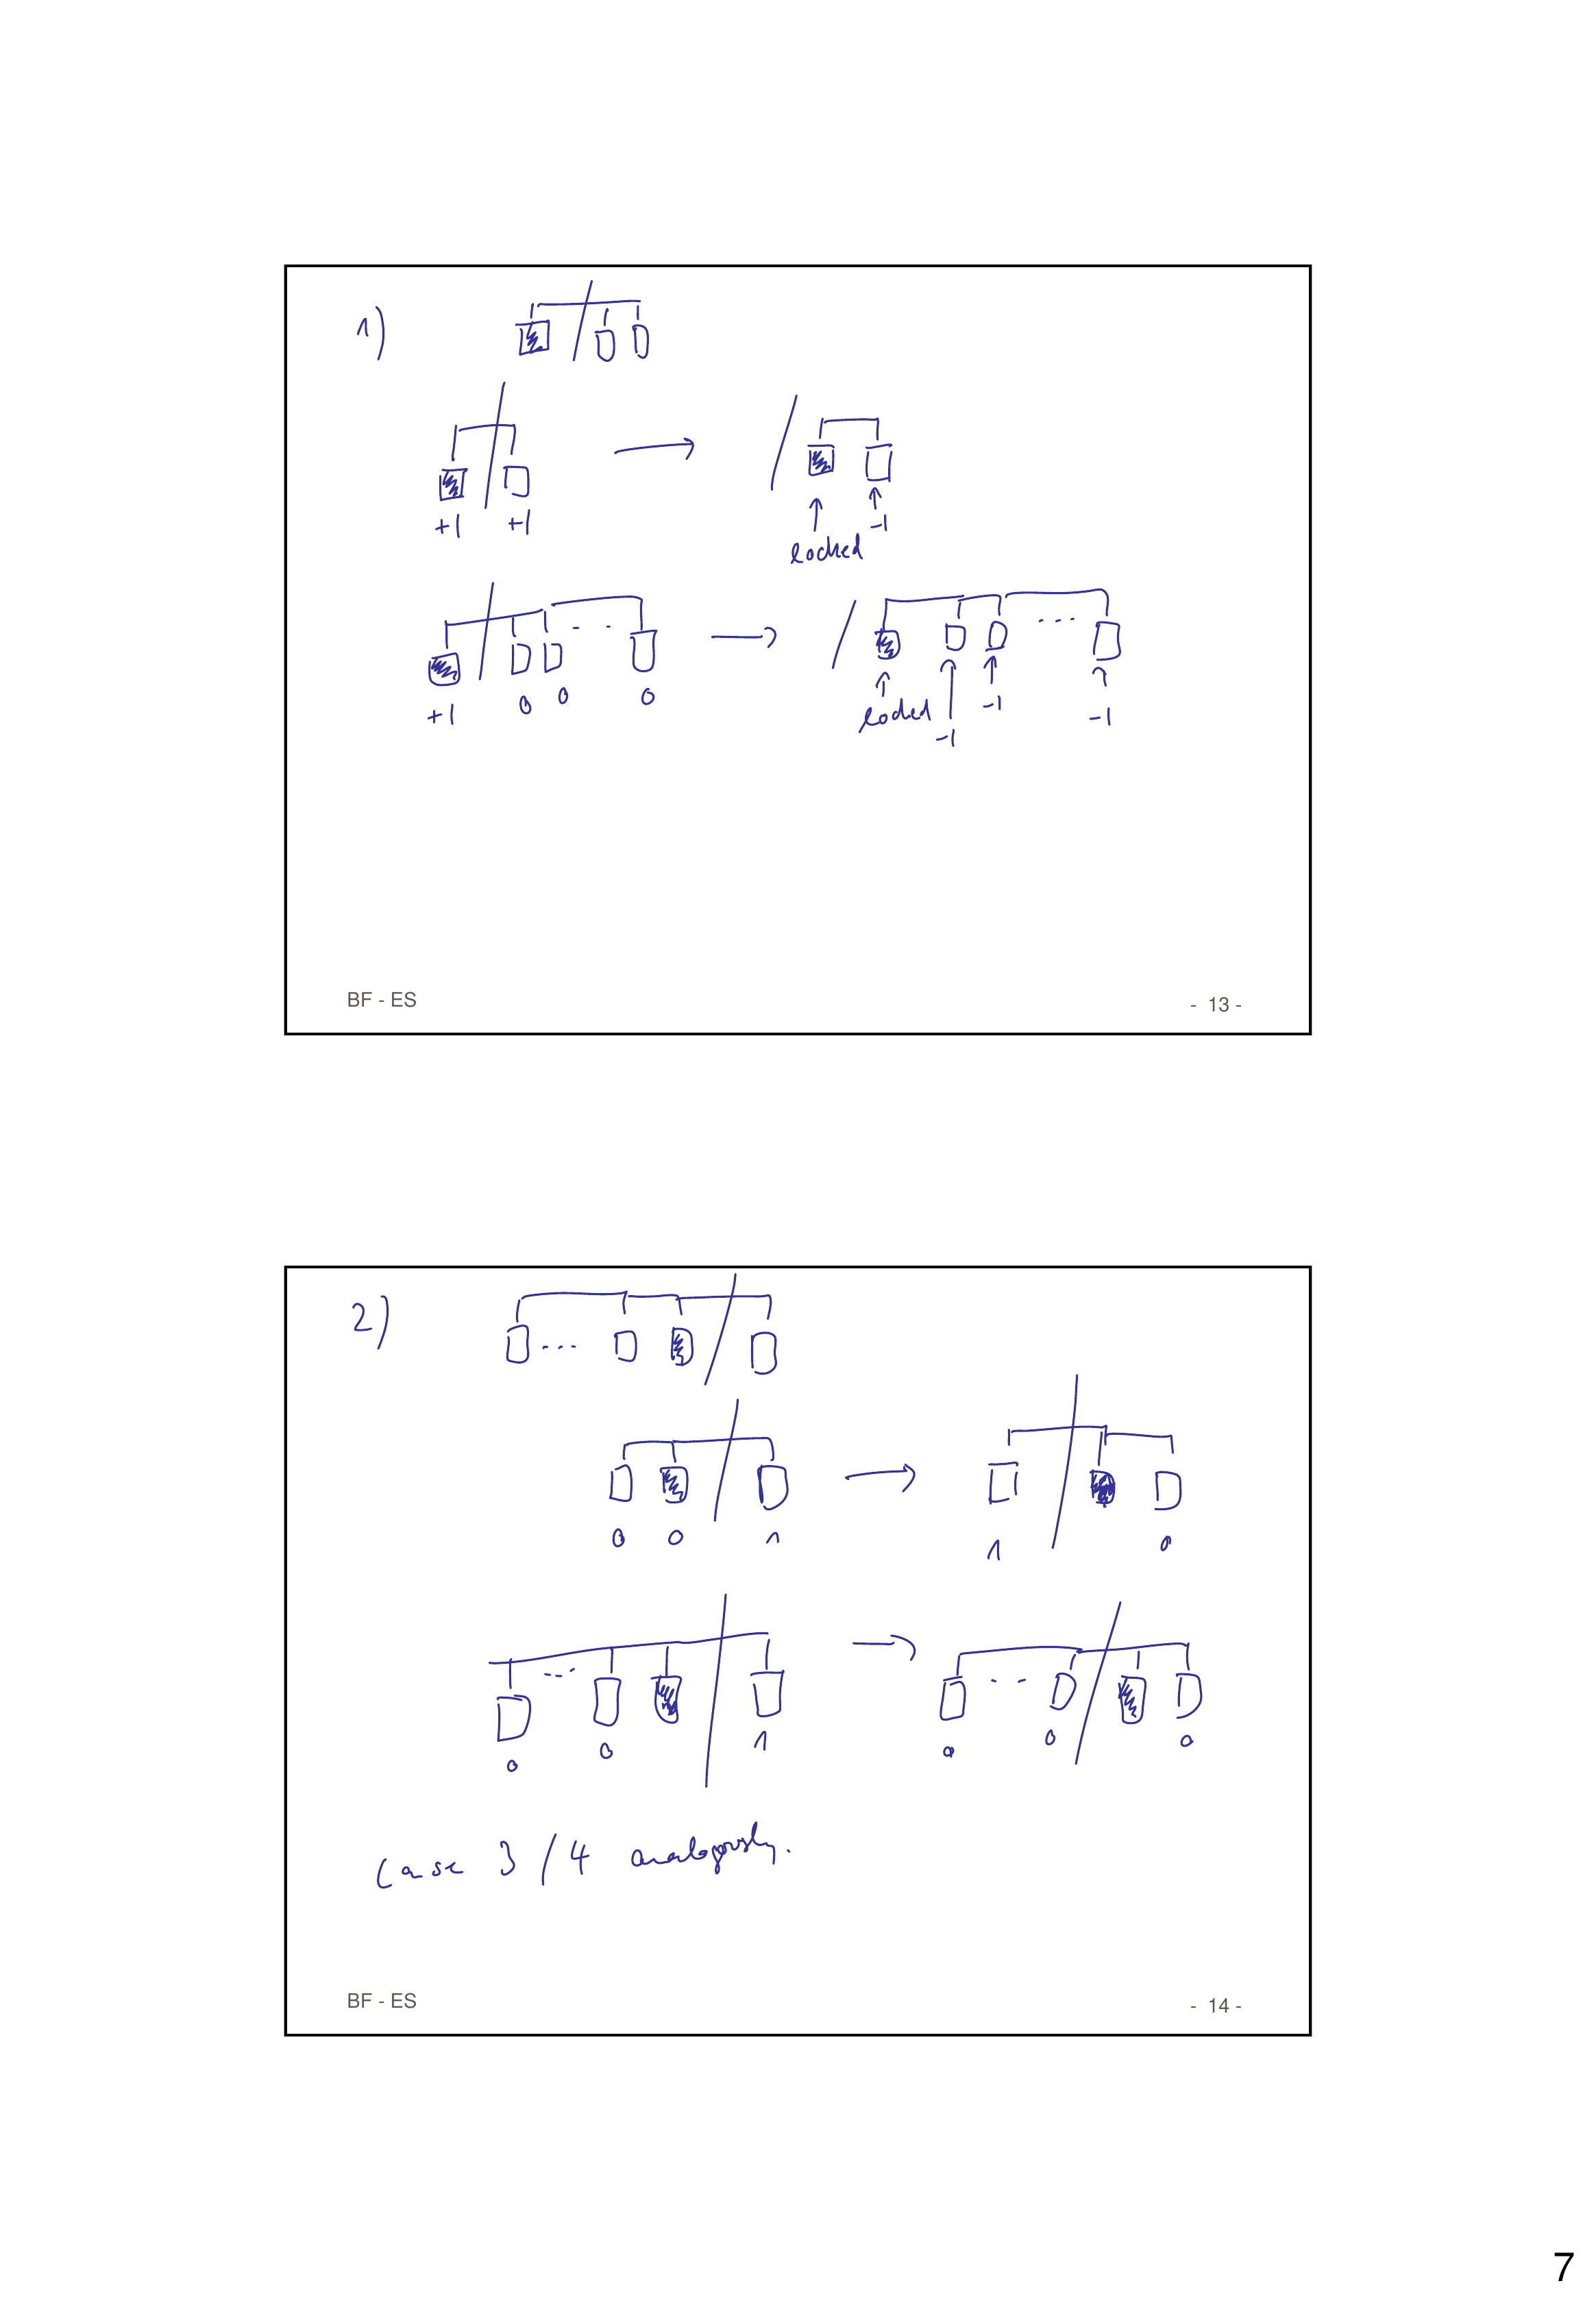 1)
+1 +1
locked -1
+1 0 0 0
locked -1 -1 -1
BF - ES
- 13 -
2)
0 0 1 1 0
0 0 1 0 0 0
Case 3/4 analogously.
BF - ES
- 14 -
7